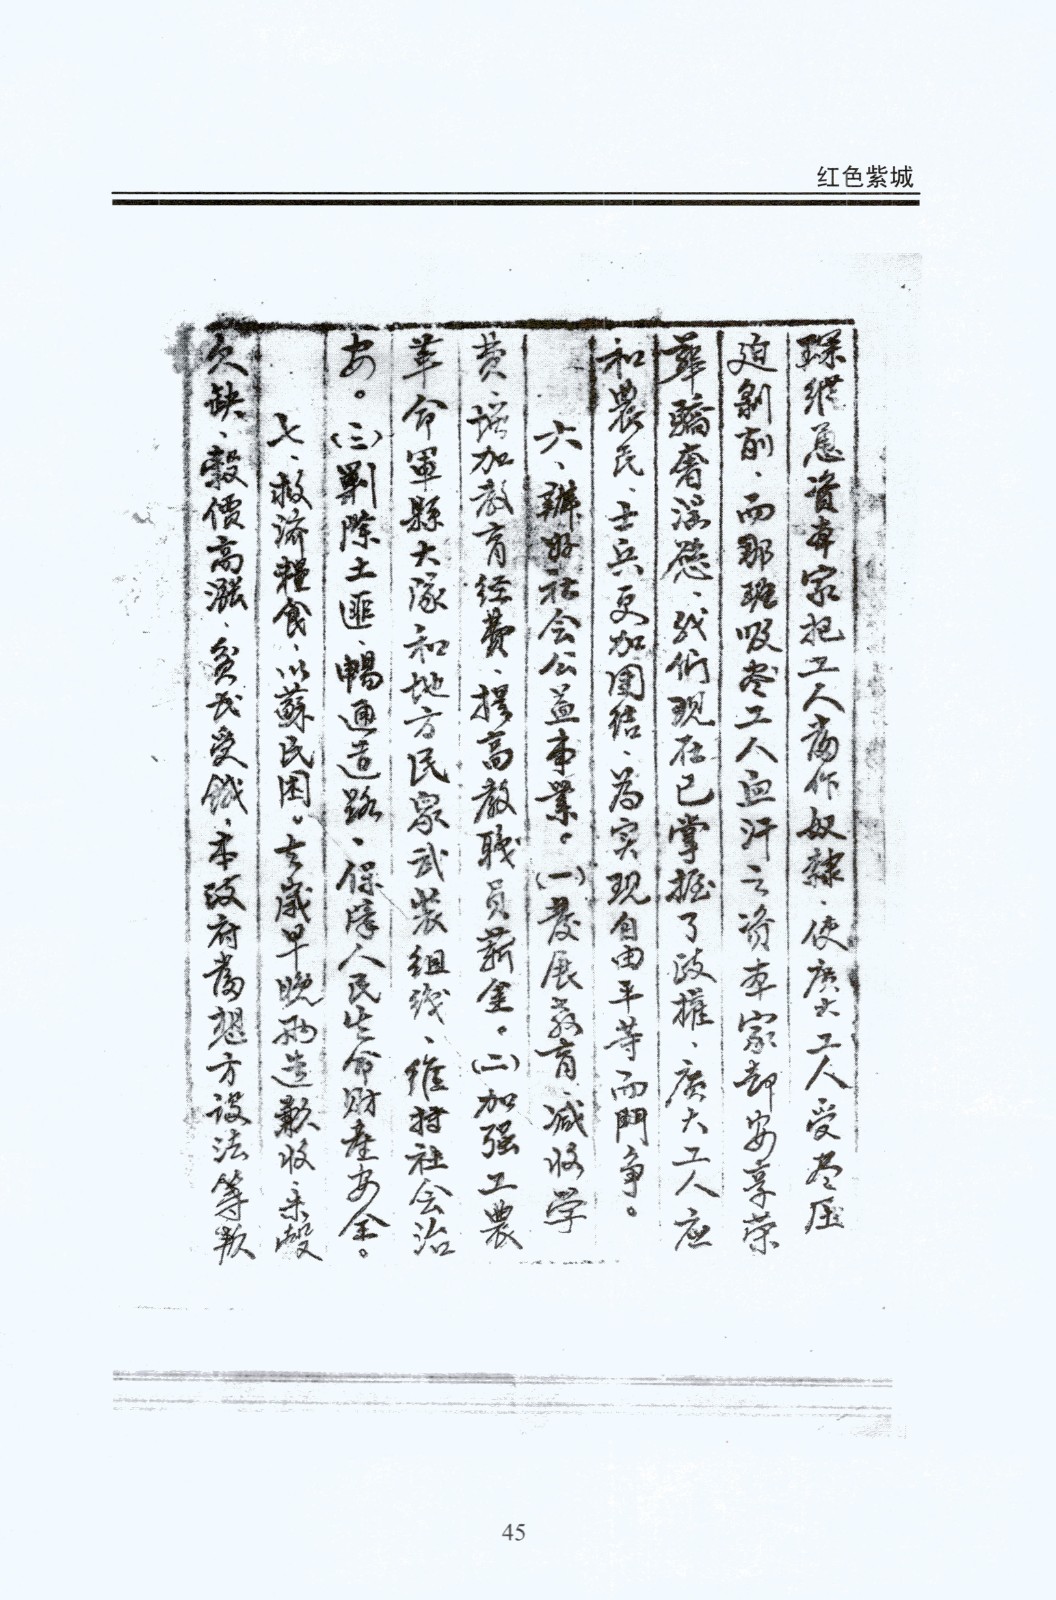 红色紫城
縱慫資本家把工人當作奴隸、使廣大工人受盡压
迫剝削、而那班吸盡工人血汗之資本家却安享荣
華驕奢淫慾、我们現在已掌握了政權、廣大工人应
和農民、士兵更加团结、為实現自由平等而鬥争。
六、辦好社会公益事業。(一)發展教育、減收学
費、增加教育经費、提高教職員薪金。(二)加强工農
革命軍縣大隊和地方民衆武装组织、維持社会治
安。(三)剿除土匪、暢通道路、保障人民生命財產安全。
七、救済糧食、以蘇民困。去歲早晚两造歉收、米穀
欠缺、穀價高漲、貧民受餓、本政府當想方設法筹
45